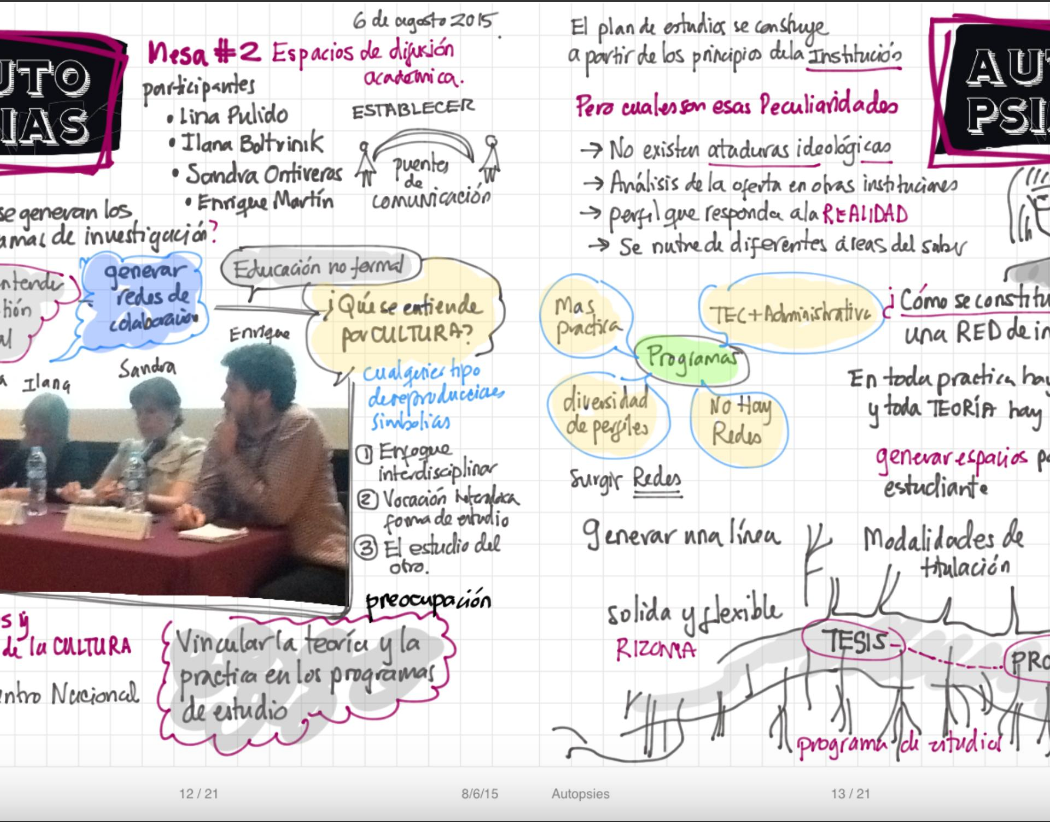 UTO
IAS
6 de agosto 2015.
Mesa #2 Espacios de difusión
académica.
participantes
• Lina Pulido
• Ilana Boltvinik
• Sandra Ontiveros
• Enrique Martín
ESTABLECER
puentes
de
comunicación
se generan los
amas de investigación?
ntende
tión
al
generar
redes de
colaboración
Educación no formal
¿Qué se entiende
por CULTURA?
Enrique
Sandra
Ilana
cualquier tipo
de reproducciones
simbólicas
① Enfoque
interdisciplinar
② Vocación
forma de estudio
③ El estudio del
otro.
preocupación
s y
de la CULTURA
entro Nacional
Vincular la teoría y la
practica en los programas
de estudio
12 / 21
8/6/15
El plan de estudios se construye
a partir de los principios de la Institución
Pero cuales son esas Peculiaridades
→ No existen ataduras ideológicas
→ Análisis de la oferta en otras instituciones
→ perfil que responda a la REALIDAD
→ Se nutre de diferentes áreas del saber
AUT
PSI
Mas
practica
TEC + Administrativa
Programas
diversidad
de perfiles
No Hay
Redes
Surgir Redes
¿Cómo se constitu
una RED de in
En toda practica hay
y toda TEORÍA hay
generar espacios p
estudiante
Generar una línea
solida y flexible
RIZOMA
Modalidades de
titulación
TESIS
PRO
programa de estudios
Autopsies
13 / 21